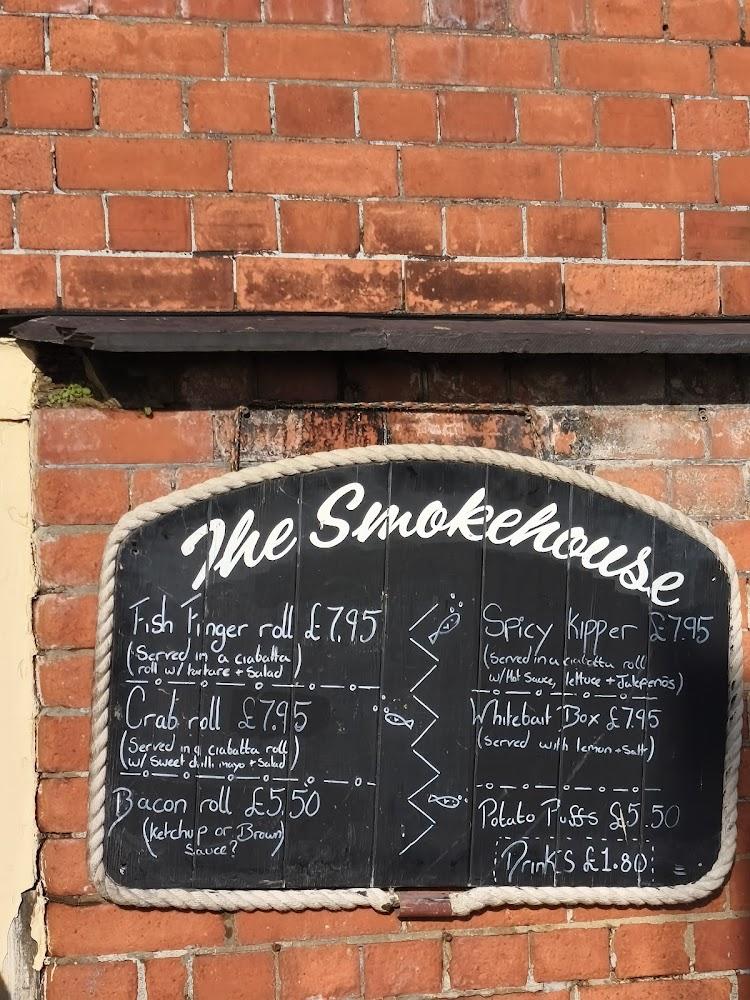 The Smokehouse
Fish Finger roll £7.95
(Served in a ciabatta
roll w/ tartare + Salad)
Crab roll £7.95
(Served in a ciabatta roll)
w/ Sweet chilli mayo + Salad)
Bacon roll £5.50
(Ketchup or Brown
Sauce?)
Spicy Kipper £7.95
(Served in a ciabatta roll
w/ Hot Sauce, lettuce + Jalapeños)
Whitebait Box £7.95
(Served with lemon + Salt)
Potato Puffs £5.50
Drinks £1.80